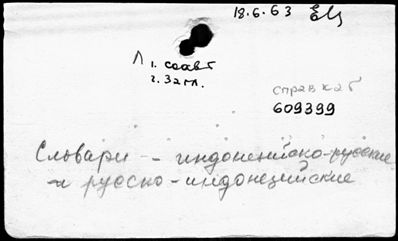 18.6.63 ЕЦ
Л 1. соавт
2. загл.
справ каб
609399
Словари - индонезийско-русские
и русско-индонезийские